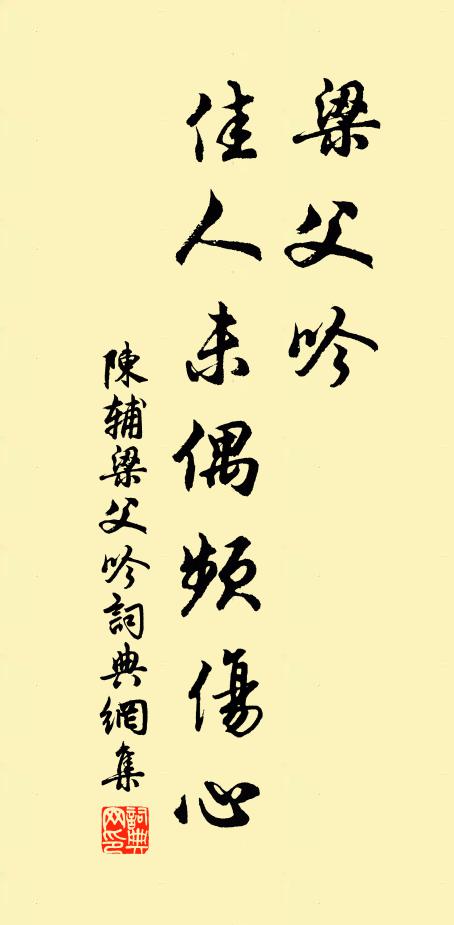 梁父吟
佳人未偶頻傷心
陳辅梁父吟詞典網集
詞典网印